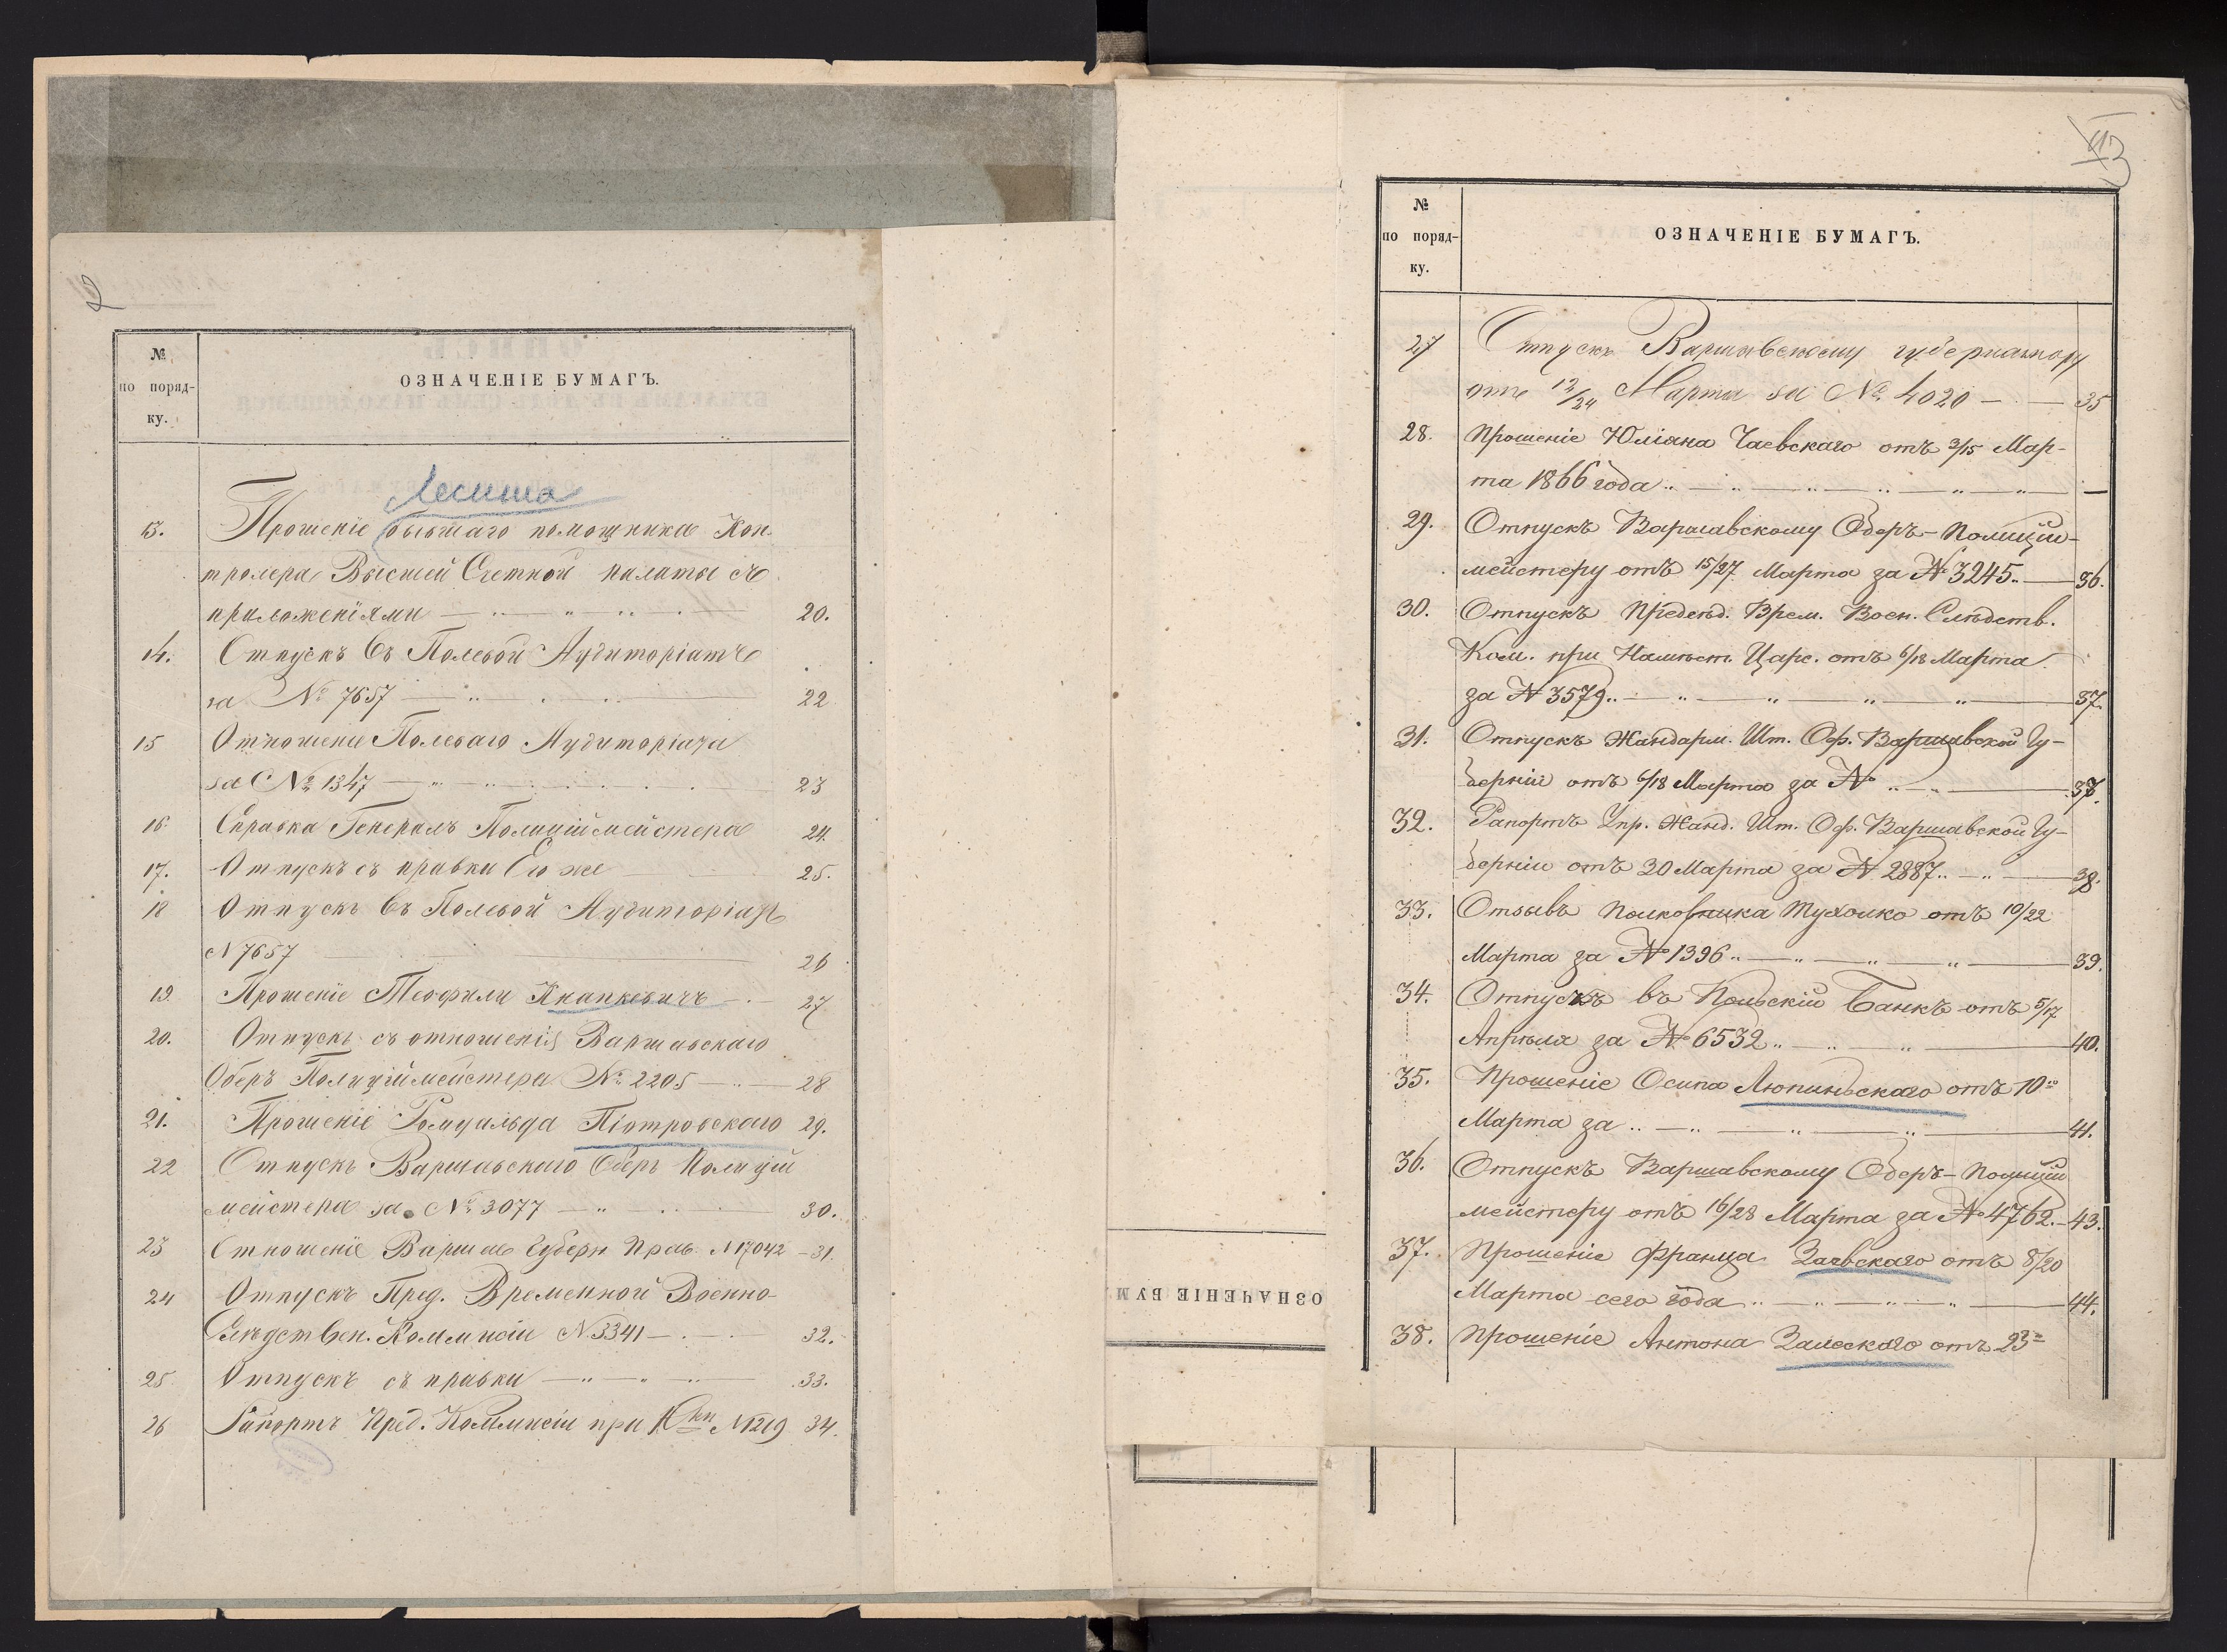 2
№
по поряд-
ку.
ОЗНАЧЕНІЕ БУМАГЪ.
Лесиша
13. Прошеніе бывшаго помощника Кон-
тролера Высшей Счетной палаты съ
приложеніями 20.
14. Отпускъ въ Полевой Аудиторіатъ
за № 7657 22
15 Отношеніе Полеваго Аудиторіата
за № 1347 23
16. Справка Генералъ Полиціймейстера 24.
17. Отпускъ съ правки Его же 25.
18 Отпускъ въ Полевой Аудиторіатъ
N 7657 26
19. Прошеніе Теофили Кнапкевичъ 27
20. Отпускъ съ отношенія Варшавскаго
Оберъ Полиціймейстера № 2205 28
21. Прошеніе Ромуальда Піотровскаго 29.
22 Отпускъ Варшавскаго Оберъ Полицій
мейстера за № 3077 30.
23 Отношеніе Варшав Губерн Прав. N 17042 - 31.
24 Отпускъ Пред. Временной Военно-
Слѣдствен. Коммисіи N 3341 32.
25 Отпускъ съ правки 33.
26 Рапортъ Пред. Коммисіи при N 1219 34.
3
№
по поряд-
ку.
ОЗНАЧЕНІЕ БУМАГЪ.
27 Отпускъ Варшавскому губернатору
отъ 12/24 Марта за № 4020 — 35
28. Прошеніе Юліана Чаевскаго отъ 3/15 Мар-
та 1866 года —
29. Отпускъ Варшавскому Оберъ-Полицій-
мейстеру отъ 15/27 Марта за № 3245 — 36.
30. Отпускъ Предсѣд. Врем. Воен. Слѣдств.
Ком. при Намѣст. Царс. отъ 6/18 Марта
за № 3579 37.
31. Отпускъ Жандарм. Шт. Оф. Варшавской Гу-
берніи отъ 6/18 Марта за № 37.
32. Рапортъ Упр. Жанд. Шт. Оф. Варшавской Гу-
берніи отъ 30 Марта за № 2887 38.
33. Отзывъ Полковника Тухолко отъ 10/22
Марта за № 1396 39.
34. Отпускъ въ Польскій Банкъ отъ 5/17
Апрѣля за № 6532 40.
35. Прошеніе Осипа Люпиньскаго отъ 10го
Марта за 41.
36. Отпускъ Варшавскому Оберъ-Полицій
мейстеру отъ 16/28 Марта за № 4762. - 43.
37. Прошеніе Франца Заевскаго отъ 8/20
Марта сего года 44.
38. Прошеніе Антона Залескаго отъ 23
ОЗНАЧЕНІЕ БУМ